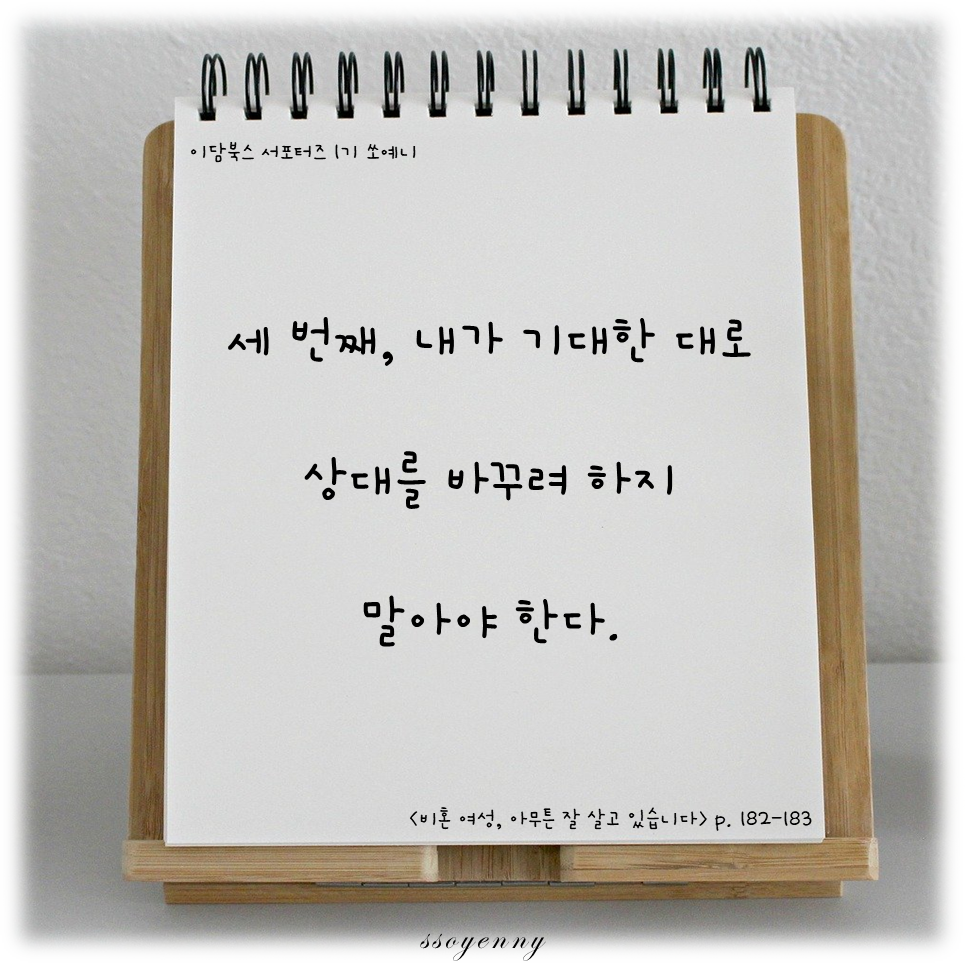 이담북스 서포터즈 1기 쏘예니
세 번째, 내가 기대한 대로
상대를 바꾸려 하지
말아야 한다.
<비혼 여성, 아무튼 잘 살고 있습니다> p. 182-183
ssoyenny